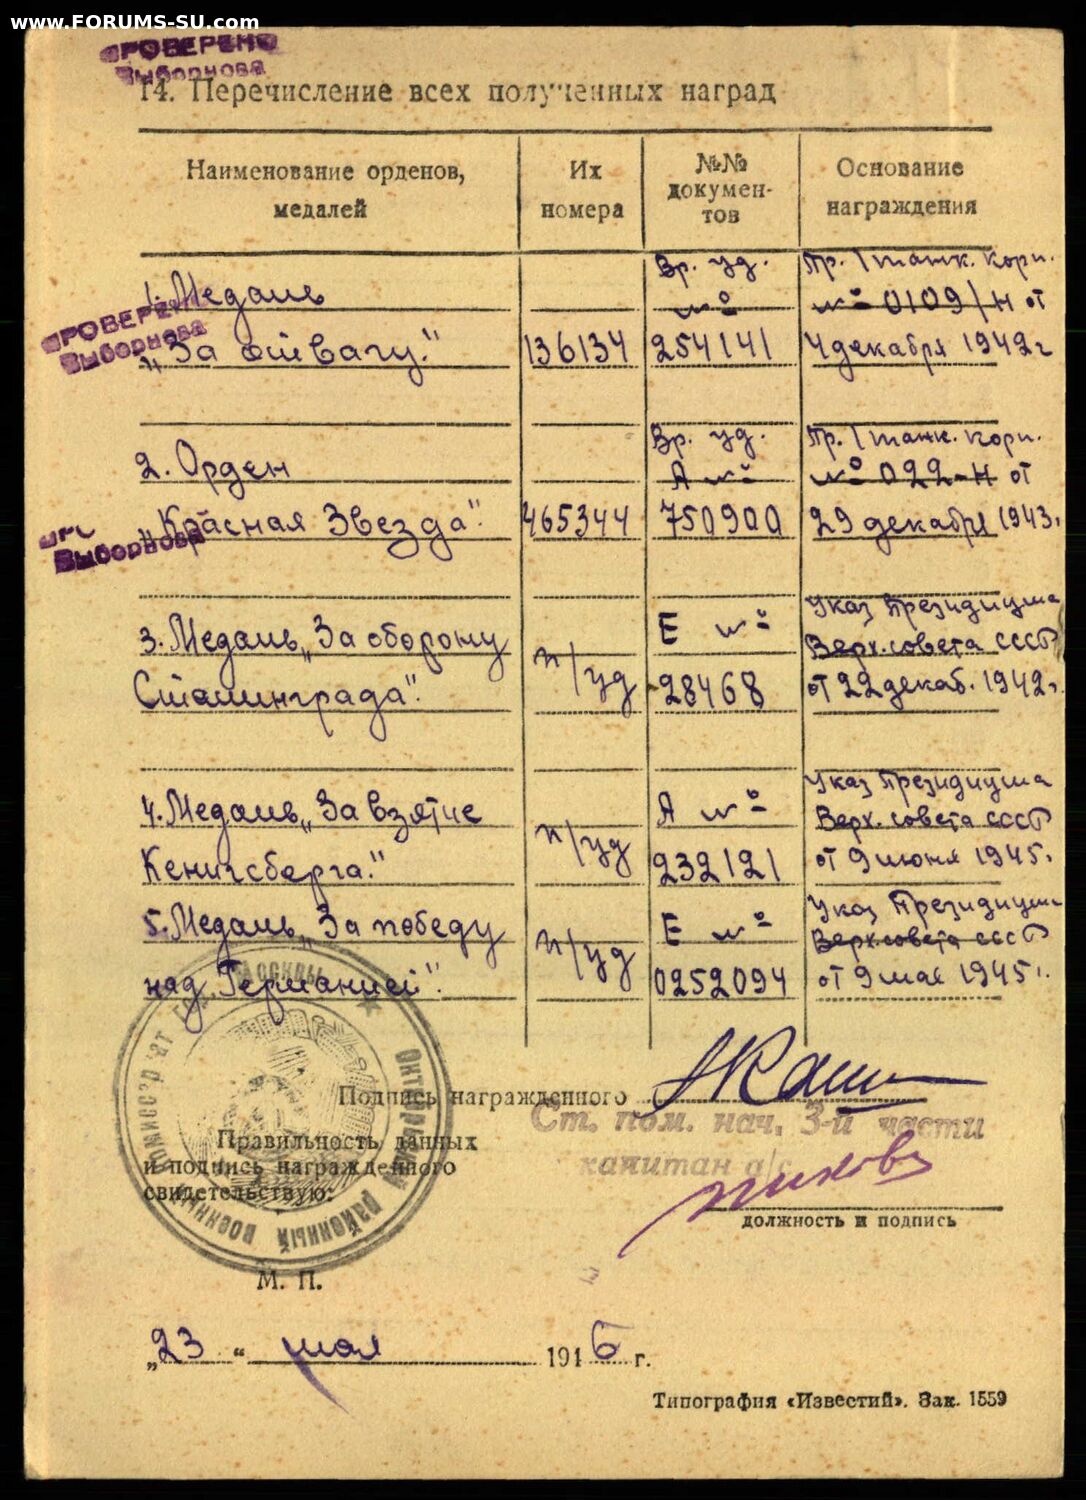 www.FORUMS-SU.com
ПРОВЕРЕНО
Выборнова
14. Перечисление всех полученных наград
Наименование орденов, медалей
Их номера
№№ документов
Основание награждения
1. Медаль
„За отвагу."
136134
Вр. уд.
№
254141
Пр. 1 танк. корп.
№ 0109/Н от
4 декабря 1942 г
ПРОВЕРЕ
Выборнова
2. Орден
„Красная Звезда".
465344
Вр. уд.
А №
750900
Пр. 1 танк. корп.
№ 022-Н от
29 декабря 1943.
Выборнова
3. Медаль „За оборону
Сталинграда".
н/уд
Е №
28468
Указ Президиума
Верх. совета СССР
от 22 декаб. 1942 г.
4. Медаль „За взятие
Кенигсберга."
н/уд
А №
232121
Указ Президиума
Верх. совета СССР
от 9 июня 1945.
5. Медаль „За победу
над Германией".
н/уд
Е №
0252094
Указ Президиума
Верх. совета СССР
от 9 мая 1945 г.
Подпись награжденного
Ст. пом. нач. 3-й части
капитан а/с
Правильность данных
и подпись награжденного
свидетельствую:
должность и подпись
Октябрьский районный военный комиссариат гор. Москвы
М. П.
„23" мая 1946 г.
Типография «Известий». Зак. 1559